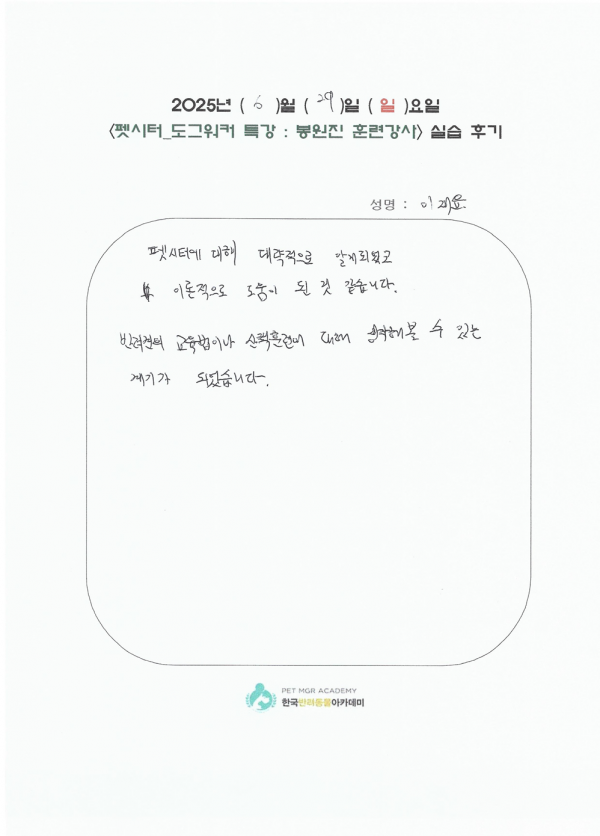 2025년 ( 6 )월 ( 29 )일 ( 일 )요일
<펫시터_도그워커 특강 : 봉원진 훈련강사> 실습 후기
성명 : 이재용
펫시터에 대해 대략적으로 알게되었고
이론적으로 도움이 된 것 같습니다.
반려견의 교육법이나 산책훈련에 대해 생각해볼 수 있는
계기가 되었습니다.
PET MGR ACADEMY
한국반려동물아카데미